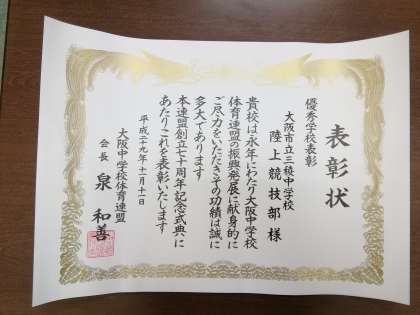 表彰状
優秀学校表彰
大阪市立三稜中学校
陸上競技部 様
貴校は永年にわたり大阪中学校
体育連盟の振興発展に献身的に
ご尽力をいただきその功績は誠に
多大であります
本連盟創立七十周年記念式典に
あたりこれを表彰いたします
平成二十九年十一月十一日
大阪中学校体育連盟
会長 泉 和善